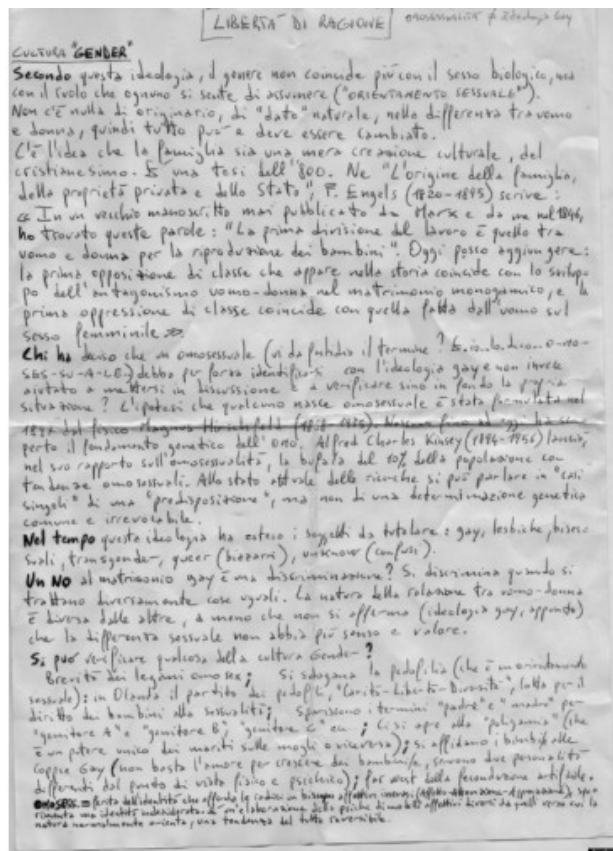 LIBERTÀ DI RAGIONE
OMOSESSUALITÀ ≠ Ideologia Gay
CULTURA "GENDER"
Secondo questa ideologia, il genere non coincide più con il sesso biologico, ma
con il ruolo che ognuno si sente di assumere ("ORIENTAMENTO SESSUALE").
Non c'è nulla di originario, di "dato" naturale, nella differenza tra uomo
e donna, quindi tutto può e deve essere cambiato.
C'è l'idea che la famiglia sia una mera creazione culturale, del
cristianesimo. È una tesi dell'800. Ne "L'origine della famiglia,
della proprietà privata e dello Stato", F. Engels (1820-1895) scrive:
« In un vecchio manoscritto mai pubblicato da Marx e da me nel 1846,
ho trovato queste parole: "La prima divisione del lavoro è quella tra
uomo e donna per la riproduzione dei bambini". Oggi posso aggiungere:
la prima opposizione di classe che appare nella storia coincide con lo svilup
po dell'antagonismo uomo-donna nel matrimonio monogamico, e la
prima oppressione di classe coincide con quella fatta dall'uomo sul
sesso femminile »
Chi ha deciso che un omosessuale (vi dà fastidio il termine? O-MO-
SES-SU-A-LE) debba per forza identificarsi con l'ideologia gay e non invece
aiutato a mettersi in discussione e a verificare sino in fondo la propria
situazione? L'ipotesi che qualcuno nasce omosessuale è stata formulata nel
dal fisico Magnus Hirschfeld Nessuno fino ad oggi ha sco
perto il fondamento genetico dell'omo. Alfred Charles Kinsey (1894-1956) lancia,
nel suo rapporto sull'omosessualità, la bufala del 10% della popolazione con
tendenze omosessuali. Allo stato attuale delle ricerche si può parlare in "casi
singoli" di una "predisposizione", ma non di una determinazione genetica
comune e irrevocabile.
Nel tempo questa ideologia ha esteso i soggetti da tutelare: gay, lesbiche, bises
suali, transgender, queer (bizzarri), unknow (confusi).
Un NO al matrimonio gay è una discriminazione? Si discrimina quando si
trattano diversamente cose uguali. La natura della relazione tra uomo-donna
è diversa dalle altre, a meno che non si afferma (ideologia gay, appunto)
che la differenza sessuale non abbia più senso e valore.
Si può verificare qualcosa della cultura Gender?
Brevità dei legami omosex; Si sdogana la pedofilia (che è un orientamento
sessuale): in Olanda il partito dei pedofili, "Carità-Libertà-Diversità", lotta per il
diritto dei bambini alla sessualità; Spariscono i termini "padre" e "madre" per
"genitore A" e "genitore B", "genitore C" ecc.; Ci si apre alla "poligamia" (che
è un potere unico dei mariti sulle mogli o viceversa); si affidano i bambini alle
coppie Gay (non basta l'amore per crescere dei bambini, servono due personalità
differenti dal punto di vista fisico e psichico); far west della fecondazione artificiale.
OMOSESS. = ferita dell'identità che affonda le radici in bisogni affettivi inevasi (Affetto-Attenzione-Approvazione),
natura normalmente orienta, una tendenza del tutto reversibile.